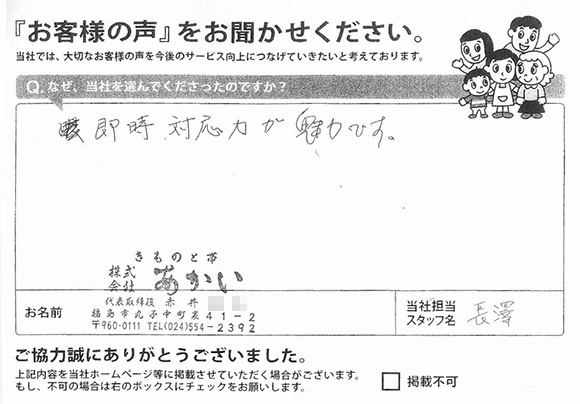 『お客様の声』をお聞かせください。
当社では、大切なお客様の声を今後のサービス向上につなげていきたいと考えております。
Q. なぜ、当社を選んでくださったのですか？
即時対応力が魅力です。
きものと帯
株式会社 あかい
代表取締役 赤井
お名前
福島市丸子中町裏41-2
〒960-0111 TEL(024)554-2392
当社担当
スタッフ名
長澤
ご協力誠にありがとうございました。
上記内容を当社ホームページ等に掲載させていただく場合がございます。
もし、不可の場合は右のボックスにチェックをお願いします。
掲載不可